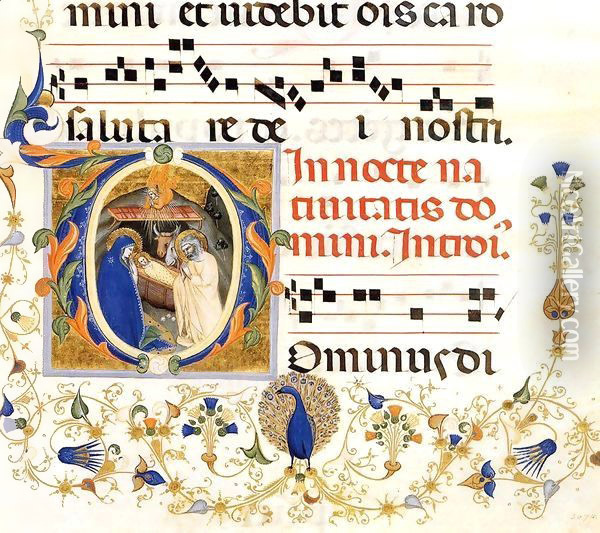 mini et videbit oīs caro
saluta re de i nostri.
In nocte na
tivitatis do
mini. Introi⁹
Ominus di
NiceArtGallery.com